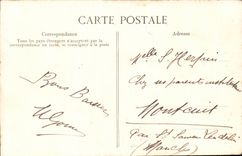 CARTE POSTALE
Correspondance
Tous les pays étrangers n'acceptent pas la
correspondance au recto, se renseigner à la poste
Adresse
Melle S.
Chez ses parents
Bons Baisers
Montcuit
Par St Sauveur Lendelin
(Manche)